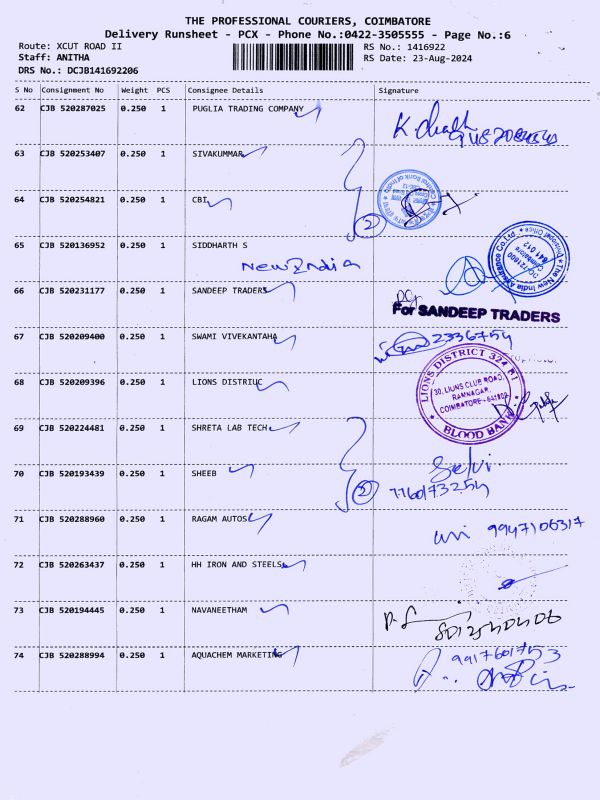 THE PROFESSIONAL COURIERS, COIMBATORE
Delivery Runsheet - PCX - Phone No.:0422-3505555 - Page No.:6
Route: XCUT ROAD II
RS No.: 1416922
Staff: ANITHA
RS Date: 23-Aug-2024
DRS No.: DCJB141692206
S No Consignment No Weight PCS Consignee Details Signature
62 CJB 520287025 0.250 1 PUGLIA TRADING COMPANY
63 CJB 520253407 0.250 1 SIVAKUMMAR
64 CJB 520254821 0.250 1 CBI
2
65 CJB 520136952 0.250 1 SIDDHARTH S
New India
The New India Assurance Co. Ltd.
66 CJB 520231177 0.250 1 SANDEEP TRADERS
For SANDEEP TRADERS
67 CJB 520209400 0.250 1 SWAMI VIVEKANTAHA
2336754
68 CJB 520209396 0.250 1 LIONS DISTRIUC
LIONS DISTRICT 324
30, LIONS CLUB ROAD,
RAMNAGAR,
COIMBATORE - 641009
BLOOD BANK
69 CJB 520224481 0.250 1 SHRETA LAB TECH
Selvi
70 CJB 520193439 0.250 1 SHEEB
2
71 CJB 520288960 0.250 1 RAGAM AUTOS
9947106317
72 CJB 520263437 0.250 1 HH IRON AND STEELS
73 CJB 520194445 0.250 1 NAVANEETHAM
74 CJB 520288994 0.250 1 AQUACHEM MARKETING
9917601753